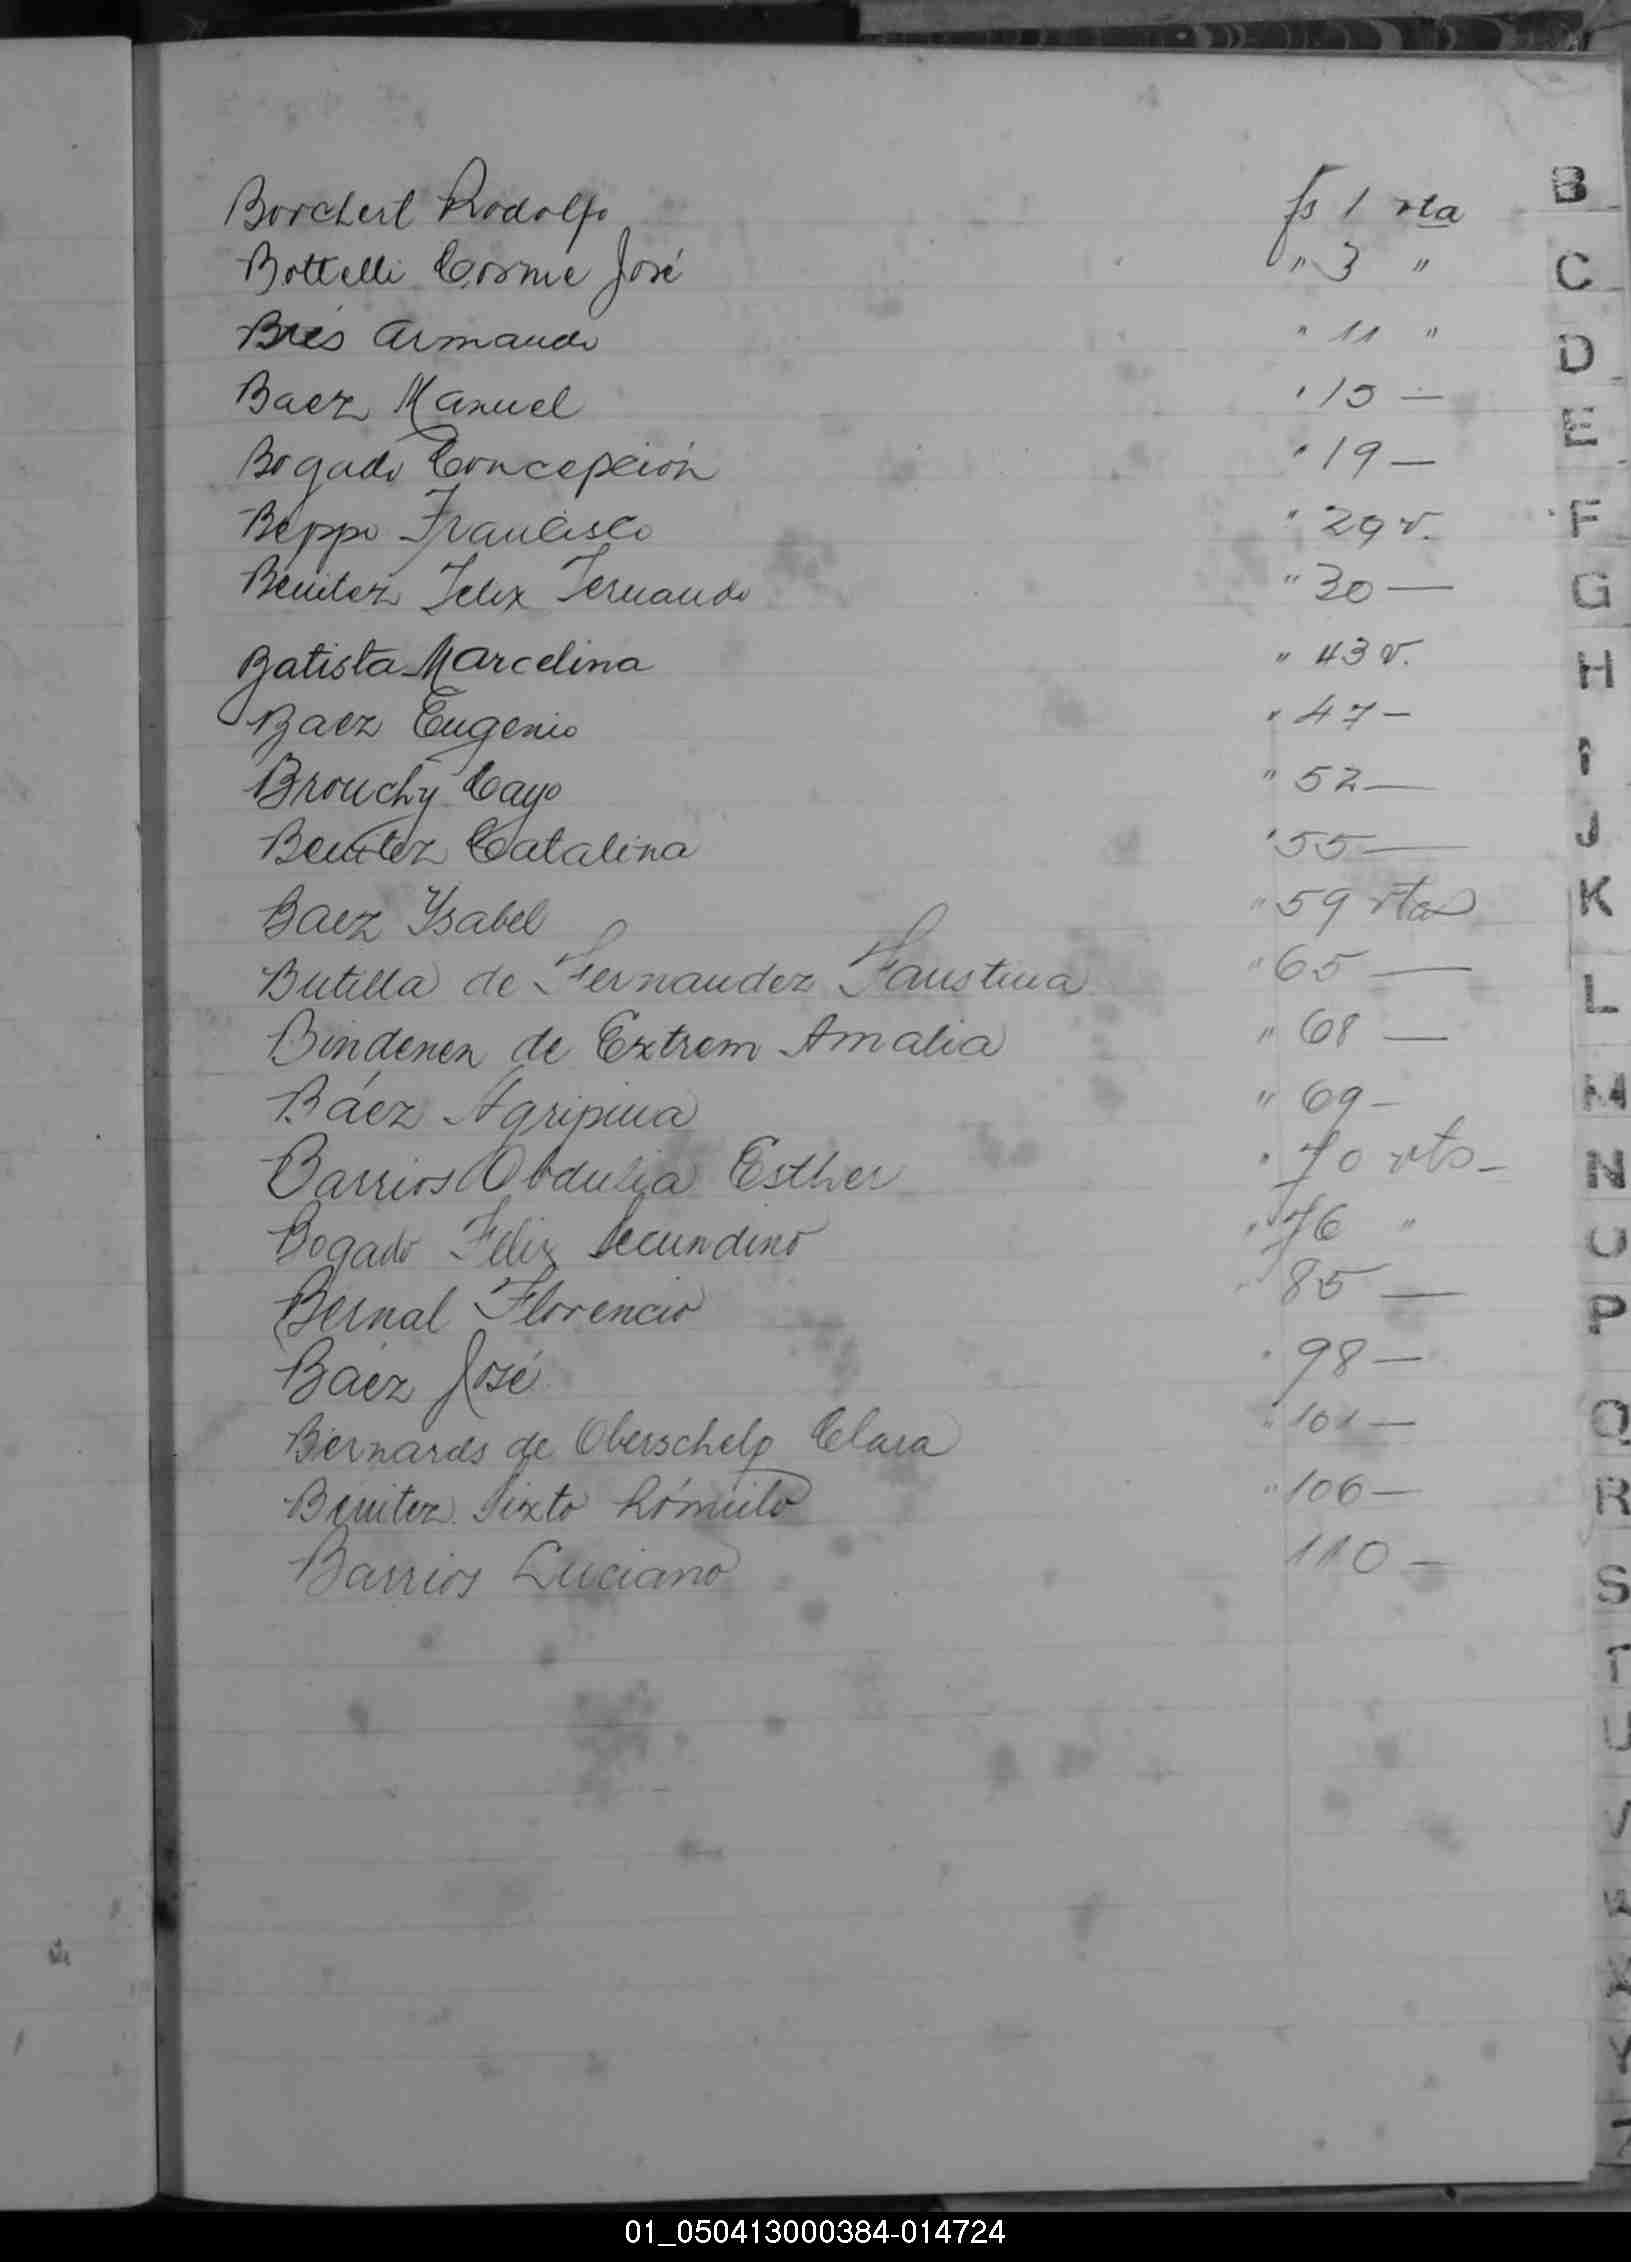 Borchert Rodolfo fs 1 vta
Bottelli Cosme José " 3 "
Brés Armando " 11 "
Baez Manuel " 15 —
Bogado Concepción " 19 —
Beppo Francisco " 29 v.
Benitez Felix Fernando " 30 —
Batista Marcelina " 43 v.
Baez Eugenio " 47 —
Brouchy Cayo " 52 —
Benitez Catalina " 55 —
Baez Ysabel " 59 vta
Butilla de Fernandez Faustina " 65 —
Bindenen de Extrem Amalia " 68 —
Báez Agripina " 69 —
Barrios Obdulia Esther " 70 vta —
Bogado Felix Secundino " 76 "
Bernal Florencio " 85 —
Báez José " 98 —
Bernards de Oberschelp Clara " 101 —
Benitez Sixto Rómulo " 106 —
Barrios Luciano 110 —
B
C
D
E
F
G
H
I
J
K
L
M
N
O
P
Q
R
S
T
U
V
01_050413000384-014724